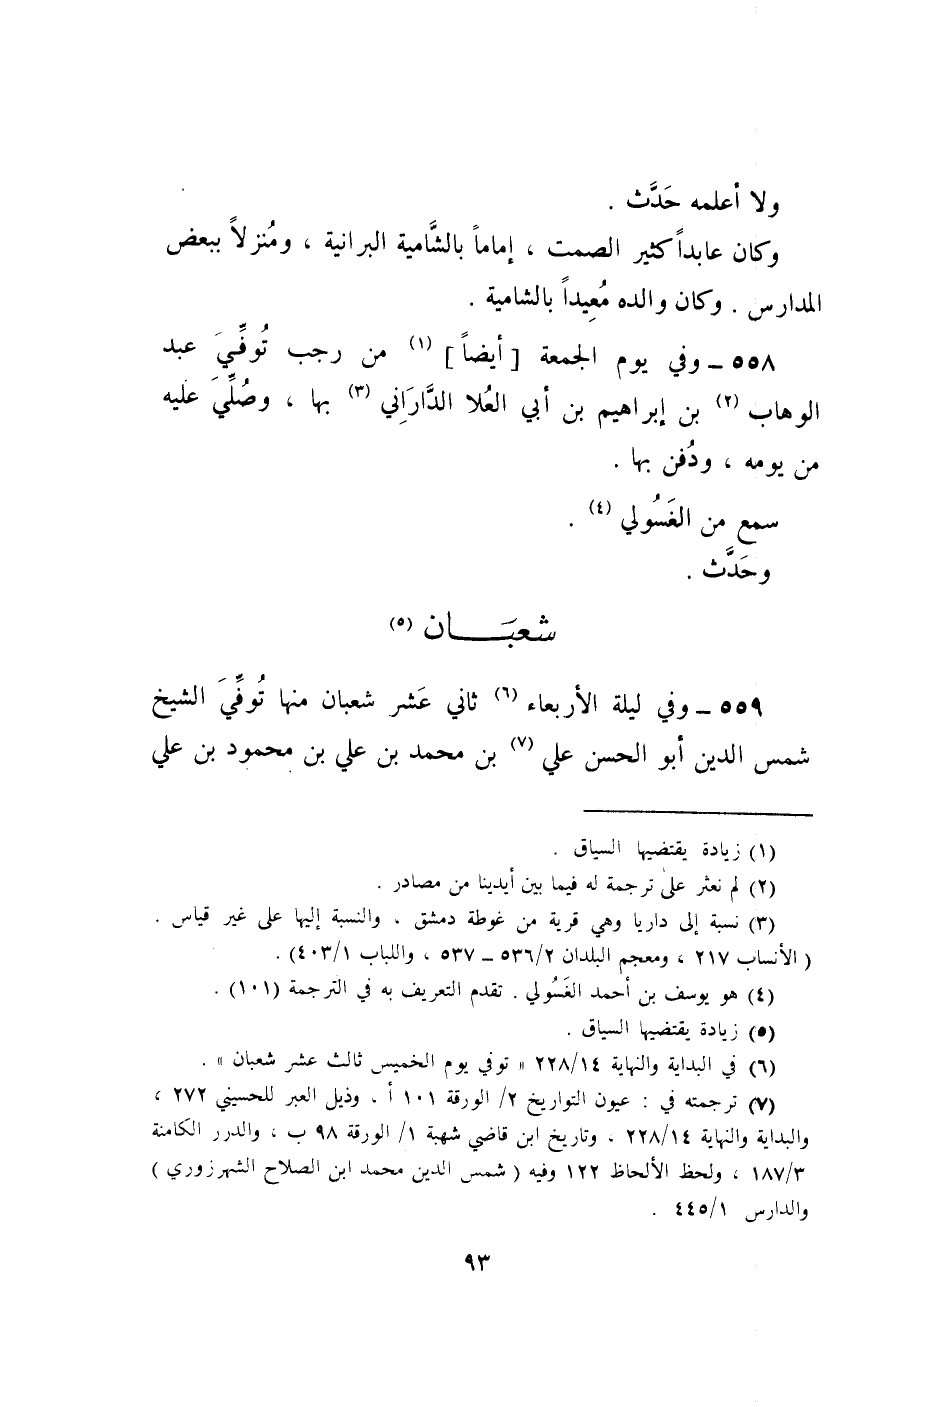 ولا أعلمه حَدَّث .
وكان عابداً كثير الصمت ، إماماً بالشَّامية البرانية ، ومُنزلاً ببعض
المدارس . وكان والده مُعِيداً بالشامية .
٥٥٨ ــ وفي يوم الجمعة [ أيضاً ] (١) من رجب تُوفِّيَ عبد
الوهاب (٢) بن إبراهيم بن أبي العُلا الدَّارَاني (٣) بها ، وصُلِّيَ عليه
من يومه ، ودُفن بها .
سمع من الغَسُولي (٤) .
وحَدَّث .
شعبَـــان (٥)
٥٥٩ ــ وفي ليلة الأربعاء (٦) ثاني عَشر شعبان منها تُوفِّيَ الشيخ
شمس الدين أبو الحسن علي (٧) بن محمد بن علي بن محمود بن علي
(١) زيادة يقتضيها السياق .
(٢) لم نعثر على ترجمة له فيما بين أيدينا من مصادر .
(٣) نسبة إلى داريا وهي قرية من غوطة دمشق ، والنسبة إليها على غير قياس .
( الأنساب ٢١٧ ، ومعجم البلدان ٥٣٦/٢ ــ ٥٣٧ ، واللباب ٤٠٣/١) .
(٤) هو يوسف بن أحمد الغَسُولي . تقدم التعريف به في الترجمة (١٠١) .
(٥) زيادة يقتضيها السياق .
(٦) في البداية والنهاية ٢٢٨/١٤ « توفي يوم الخميس ثالث عشر شعبان » .
(٧) ترجمته في : عيون التواريخ ٢/ الورقة ١٠١ أ ، وذيل العبر للحسيني ٢٧٢ ،
والبداية والنهاية ٢٢٨/١٤ ، وتاريخ ابن قاضي شهبة ١/ الورقة ٩٨ ب ، والدرر الكامنة
١٨٧/٣ ، ولحظ الألحاظ ١٢٢ وفيه ( شمس الدين محمد ابن الصلاح الشهرزوري )
والدارس ٤٤٥/١ .
٩٣